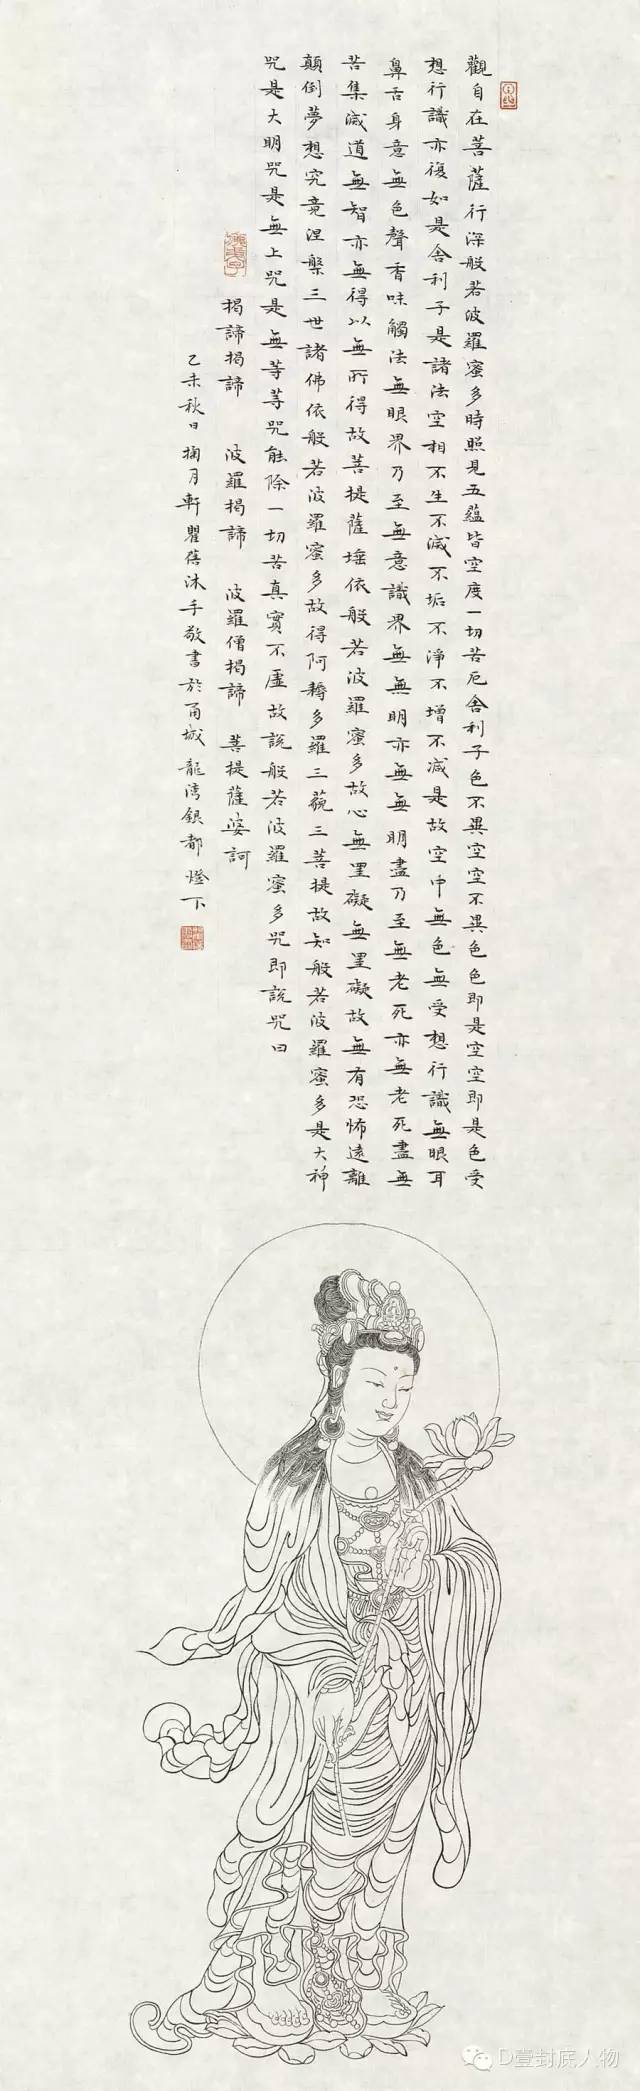 觀自在菩薩行深般若波羅蜜多時照見五蘊皆空度一切苦厄舍利子色不異空空不異色色即是空空即是色受
想行識亦復如是舍利子是諸法空相不生不滅不垢不淨不增不減是故空中無色無受想行識無眼耳
鼻舌身意無色聲香味觸法無眼界乃至無意識界無無明亦無無明盡乃至無老死亦無老死盡無
苦集滅道無智亦無得以無所得故菩提薩埵依般若波羅蜜多故心無罣礙無罣礙故無有恐怖遠離
顛倒夢想究竟涅槃三世諸佛依般若波羅蜜多故得阿耨多羅三藐三菩提故知般若波羅蜜多是大神
咒是大明咒是無上咒是無等等咒能除一切苦真實不虛故說般若波羅蜜多咒即說咒曰
揭諦揭諦 波羅揭諦 波羅僧揭諦 菩提薩婆訶
乙未秋日摘月軒瞿蓓沐手敬書於甬城龍湾銀都燈下
D壹封底人物